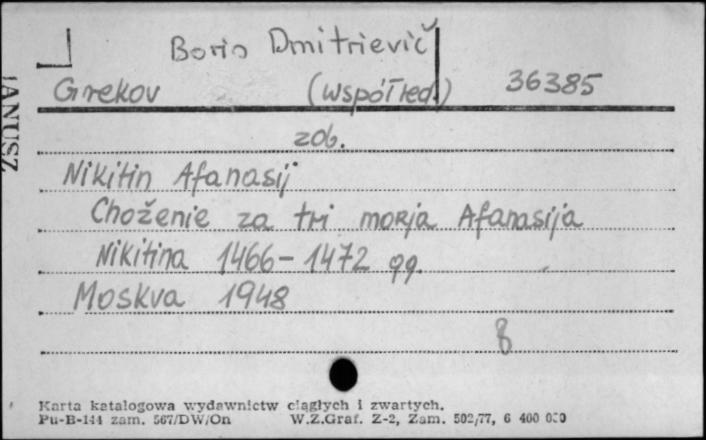 Boris Dmitrievič
Grekov (współred.) 36385
zob.
Nikitin Afanasij
Choženie za tri morja Afanasija
Nikitina 1466-1472 gg.
Moskva 1948
8
Karta katalogowa wydawnictw ciągłych i zwartych.
Pu-B-144 zam. 567/DW/On W.Z.Graf. Z-2, Zam. 502/77, 6 400 000
JANUSZ